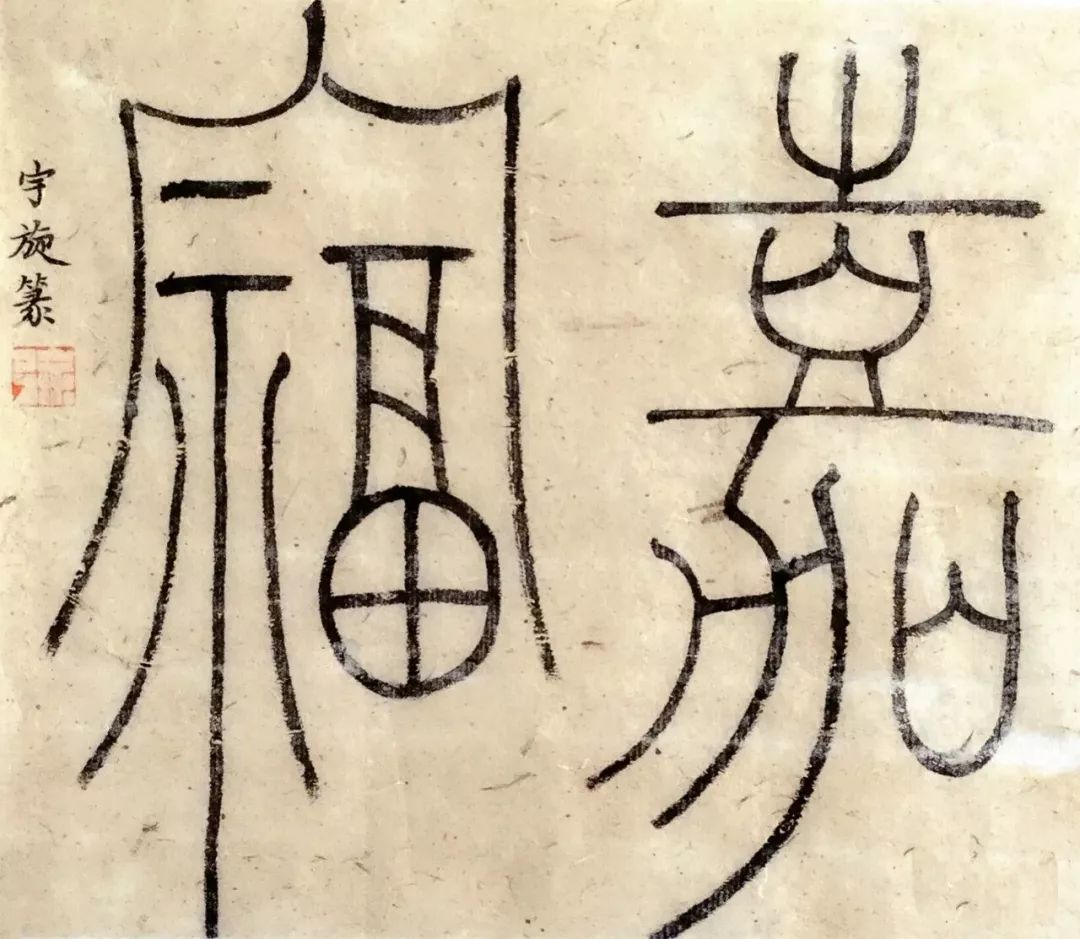 嘉福
宇旋篆